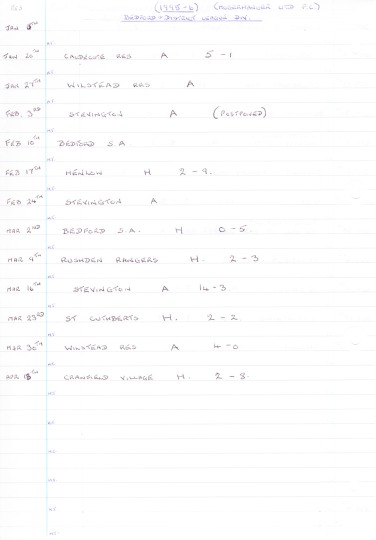 (1995-6) (MOGERHANGER UTD F.C)
BEDFORD & DISTRICT LEAGUE DIV.
JAN 6TH
JAN 20TH CALDECOTE RES A 5-1
JAN 27TH WILSTEAD RES A
FEB. 3RD STEVINGTON A (POSTPONED)
FEB 10TH BEDFORD S.A.
FEB 17TH HENLOW H 2-9.
FEB 24TH STEVINGTON A
MAR 2ND BEDFORD S.A. H 0-5.
MAR 9TH RUSHDEN RANGERS H. 2-3
MAR 16TH STEVINGTON A 14-3
MAR 23RD ST CUTHBERTS H. 2-2.
MAR 30TH WILSTEAD RES A 4-0
APR 13TH CRANFIELD VILLAGE H. 2-8.